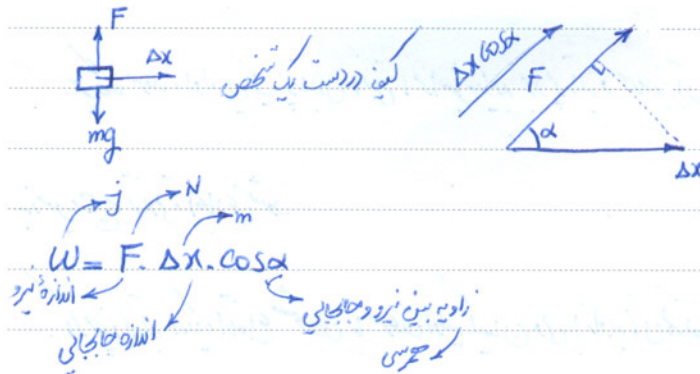 F
Δx
mg
کیف در دست یک شخص
Δx cosα
F
α
Δx
j
N
m
W = F. Δx. cosα
اندازهٔ نیرو
اندازه جابجائی
زاویه بین نیرو و جابجایی